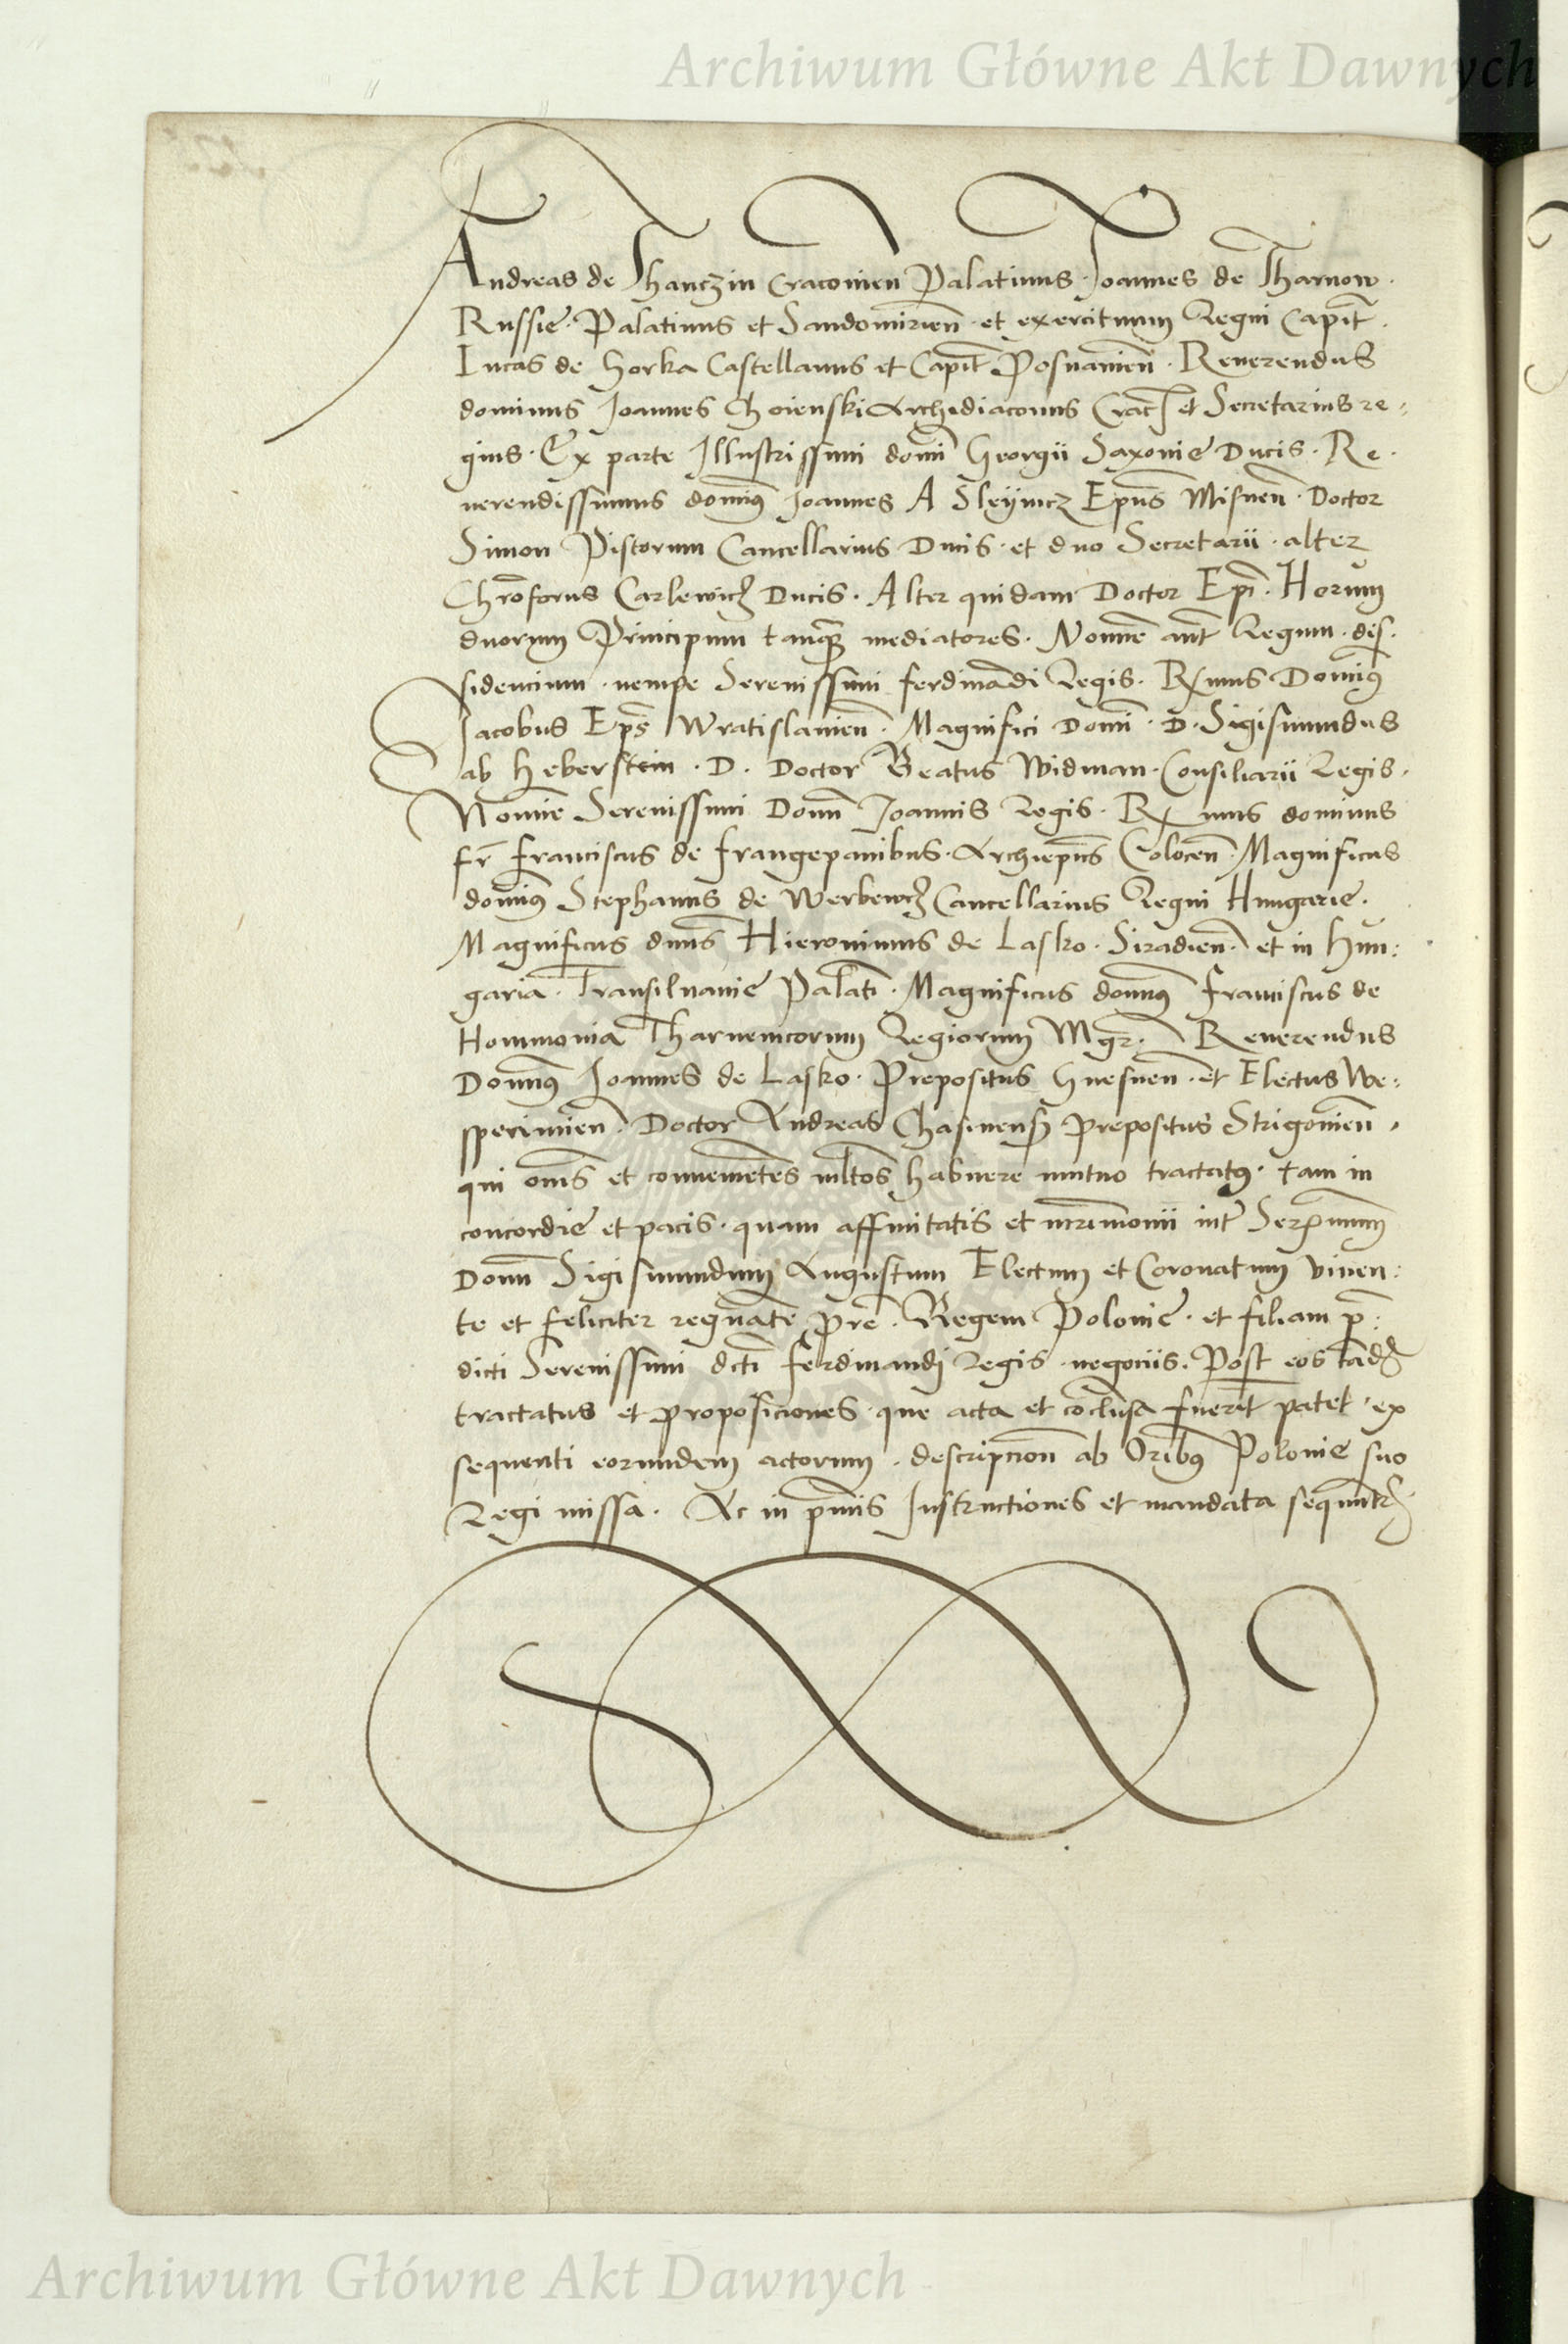 Archiwum Główne Akt Dawnych
Andreas de Thanczin Cracouien Palatinus · Joannes de Tharnow ·
Russie · Palatinus et Sandomirien̄ · et exercituum Regni Capit̄ ·
Lucas de Horka Castellanus et Capit̄ Posnanien̄ · Reuerendus
dominus Joannes Choienski Archidiaconus Crac̄ et Secretarius re-
gius · Ex parte Illustrissimi domī Georgii Saxonie Ducis · Re-
uerendissimus domin9 Joannes A Sleÿnicz Ep̄us Misnen̄ · Doctor
Simon Pistorum Cancellarius Ducis · et duo Secretarii · alter
Chrōforus Carlewicz Ducis · Alter quidam Doctor Ep̄i · Horum
duorum Principum tanq̄ mediatores · Nomīe aut̄ Regum · dis-
sidencium · nempe Serenissimi Ferdinādi Regis · Rx̄mus Domin9
Jacobus Ep̄s Wratislauien̄ · Magnifici Domī · D · Sigismundus
ab Heberstein · D · Doctor Beatus Widman · Consiliarii Regis ·
Nomīe Serenissimi Domī Joannis Regis · Rx̄mus dominus
fr̄ Franciscus de Frangepanibus · Archiep̄us Colocen̄ · Magnificus
domin9 Stephanus de Werbewcz Cancellarius Regni Hungarie ·
Magnificus dn̄us Hieronimus de Lasko · Siradien̄ · et in Hun:
garia · Transiluanie Palatī · Magnificus domin9 Franciscus de
Hommonia Tharuenicorum Regiorum Mgr̄ · Reuerendus
Domin9 Joannes de Lasko · Prepositus Gnesnen̄ · et Electus We:
sperimien̄ · Doctor Andreas Chasinensis Prepositus Strigonien̄ ·
qui om̄s et conuenientes ml̄tos habuere mutuo tractat9 · tam in
concordie et pacis · quam affinitatis et mr̄imonii int̄ Ser̄mum
Domī Sigismundum Augustum Electum et Coronatum viuen:
te et feliciter regnātē pr̄e · Regem Polonie · et filiam p̄:
dicti Serenissimi dctī Ferdinandi Regis · negociis · Post eos tād
tractatus et proposiciones · que acta et cōclusa fuer̄t patet · ex
sequenti eorundem actorum · descripcion̄ ab Or̄ibus Polonie suo
Regi missa · Ac in p̄mis Instructiones et mandata sequnt̄r
Archiwum Główne Akt Dawnych